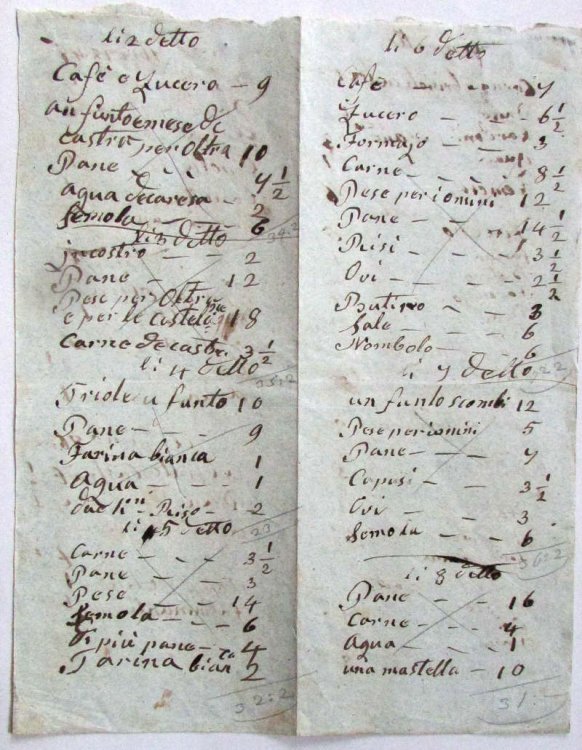 li 2 detto
Cafè e Zucero — 9
un funto e mese de
castrà per Oltra 10
Pane - - - 7 1/2
agua de caresa 2
Semola 6
34:2
li 3 detto
incostro — — 2
Pane — — 12
Pese per Oltra
e per le castela 18
Carne de castra 3 1/2
35:2
li 4 detto
Triole u funto 10
Pane — — — 9
Farina bianca 1
Aqua — — — 1
Riso — 2
23
li 5 detto
Carne — — — 3 1/2
Pane — — — 3
Pese — — — 14
Semola — — — 6
Di più pane — 4
Farina bianca 2
32:2
li 6 detto
Cafè 7
Zucero — — 6 1/2
Formajo — — 3
Carne — — — 8 1/2
Pese per i omini 12
Pane — — — 14 1/2
Risi — — — 3 1/2
Ovi — — — 2 1/2
Butiro — — 3
Sale — — — 6
Nombolo — — 6
li 7 detto
un funto scombi 12
Pese per i omini 5
Pane — — — 7
Capusi — — 3 1/2
Ovi — — — 3
Semola — — 6
36:2
li 8 detto
Pane — — — 16
Carne — — — 4
Aqua — — — 1
una mastella — 10
31 -